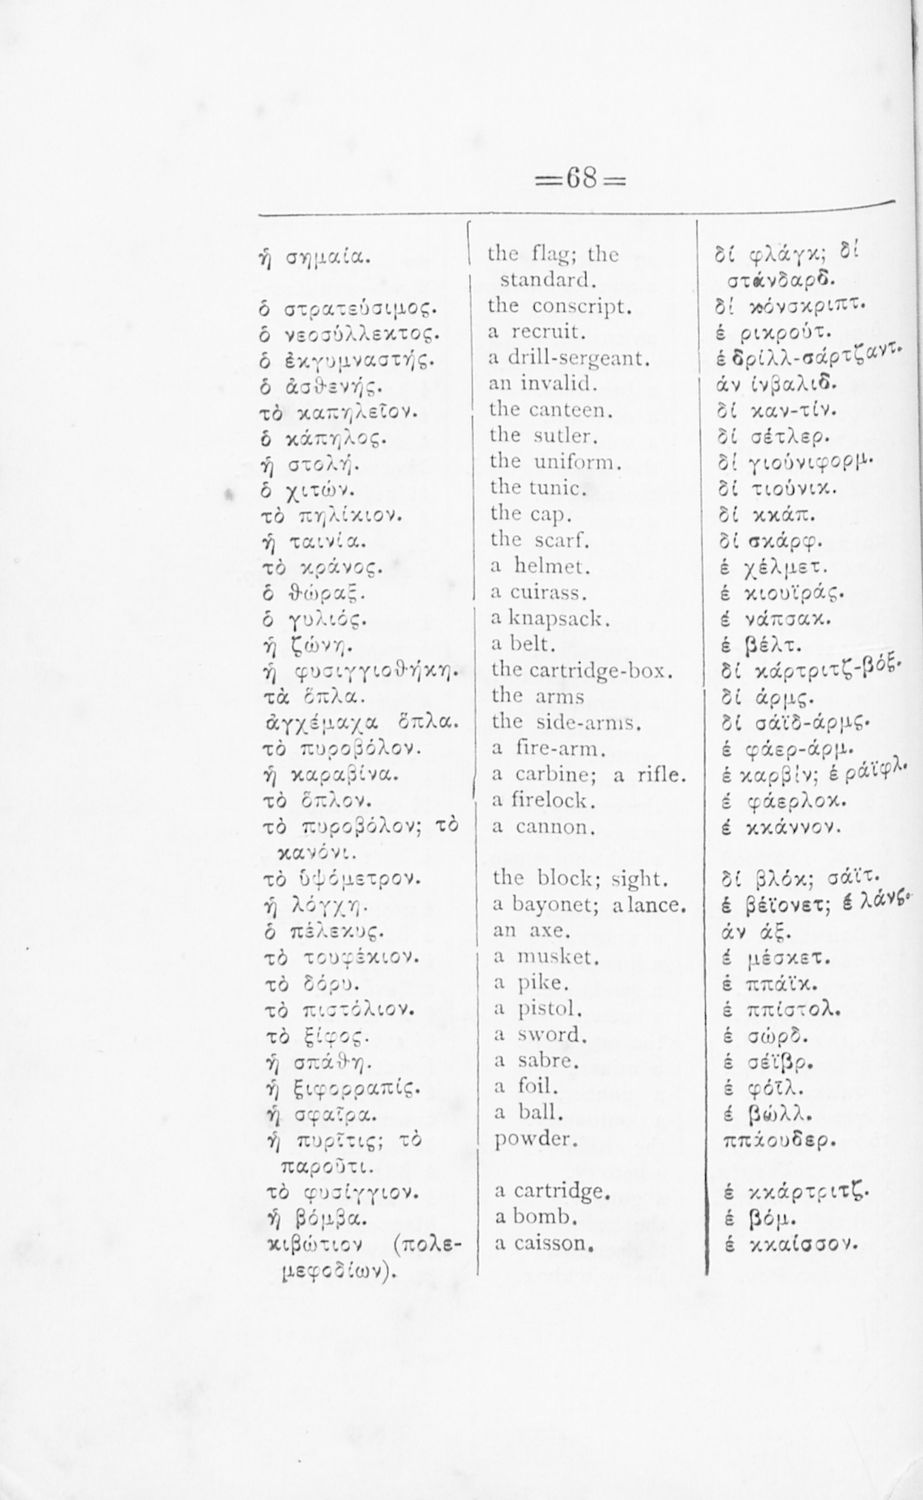 =68=
ἡ σημαία. the flag; the δί φλάγκ; δί
standard. στάνδαρδ.
ὁ στρατεύσιμος. the conscript. δί κόνσκριπτ.
ὁ νεοσύλλεκτος. a recruit. έ ρικρούτ.
ὁ ἐκγυμναστής. a drill-sergeant. έ δρίλλ-σάρτζαντ.
ὁ ἀσθενής. an invalid. άν ίνβαλιδ.
τὸ καπηλεῖον. the canteen. δί καν-τίν.
ὁ κάπηλος. the sutler. δί σέτλερ.
ἡ στολή. the uniform. δί γιούνιφορμ.
ὁ χιτών. the tunic. δί τιούνικ.
τὸ πηλίκιον. the cap. δί κκάπ.
ἡ ταινία. the scarf. δί σκάρφ.
τὸ κράνος. a helmet. έ χέλμετ.
ὁ θώραξ. a cuirass. έ κιουϊράς.
ὁ γυλιός. a knapsack. έ νάπσακ.
ἡ ζώνη. a belt. έ βέλτ.
ἡ φυσιγγιοθήκη. the cartridge-box. δί κάρτριτζ-βόξ.
τὰ ὅπλα. the arms δί άρμς.
ἀγχέμαχα ὅπλα. the side-arms. δί σάϊδ-άρμς.
τὸ πυροβόλον. a fire-arm. έ φάερ-άρμ.
ἡ καραβίνα. a carbine; a rifle. έ καρβίν; έ ράϊφλ.
τὸ ὅπλον. a firelock. έ φάερλοκ.
τὸ πυροβόλον; τὸ a cannon. έ κκάννον.
κανόνι.
τὸ ὑψόμετρον. the block; sight. δί βλόκ; σάϊτ.
ἡ λόγχη. a bayonet; a lance. έ βέϊονετ; έ λάνς.
ὁ πέλεκυς. an axe. άν άξ.
τὸ τουφέκιον. a musket. έ μέσκετ.
τὸ δόρυ. a pike. έ ππάϊκ.
τὸ πιστόλιον. a pistol. έ ππίστολ.
τὸ ξίφος. a sword. έ σώρδ.
ἡ σπάθη. a sabre. έ σέϊβρ.
ἡ ξιφορραπίς. a foil. έ φόϊλ.
ἡ σφαῖρα. a ball. έ βώλλ.
ἡ πυρῖτις; τὸ powder. ππάουδερ.
παροῦτι.
τὸ φυσίγγιον. a cartridge. έ κκάρτριτζ.
ἡ βόμβα. a bomb. έ βόμ.
κιβώτιον (πολε- a caisson. έ κκαίσσον.
μεφοδίων).